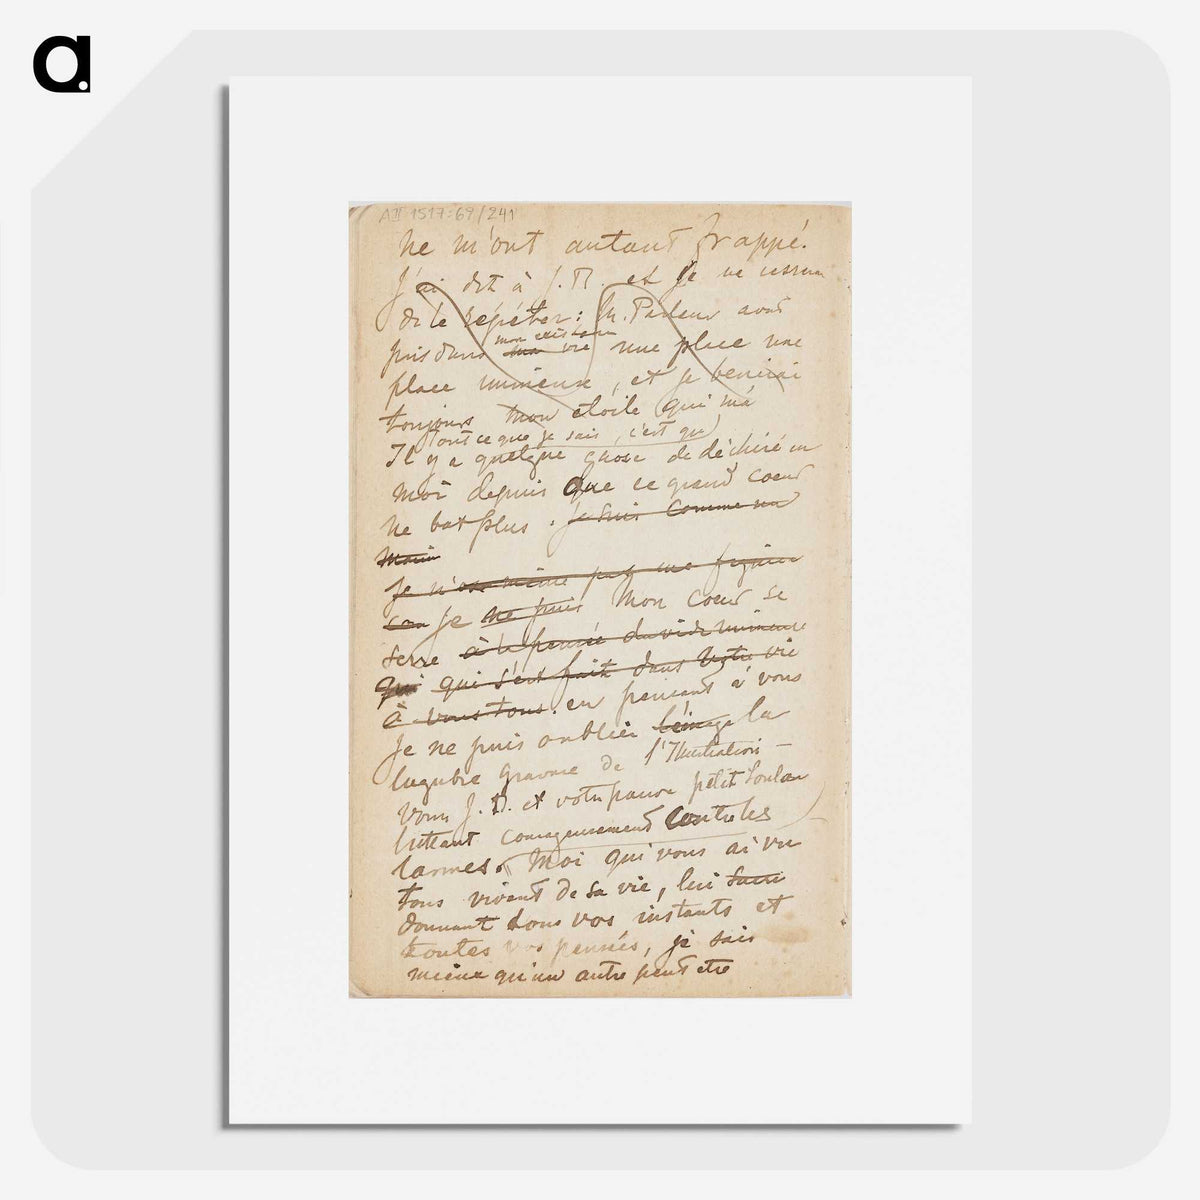 a.
AII 1517:69/241
ne m'ont autant frappé.
J'ai dit à J.B. et je ne cesserai
de le répéter: M. Pasteur avait
mon existence
pris dans ma vie une place une
place immense, et je benirai
toujours mon etoile qui m'a
Tout ce que je sais, c'est qu
Il y a quelque chose de déchiré en
moi depuis que ce grand coeur
ne bat plus. je suis comme un
marin
Je n'ose même pas me figurer
car Je ne puis Mon coeur se
serre à la pensée du vide immense
qui qui s'est fait dans votre vie
à vous tous. en pensant à vous
Je ne puis oublier l'image la
lugubre gravure de l'Illustration –
vous J.B. et votre pauvre petit
luttant courageusement contre les
larmes. Moi qui vous ai vu
tous vivant de sa vie, lui
donnant tous vos instants et
toutes vos pensées, je sais
mieux qu'un autre peut etre